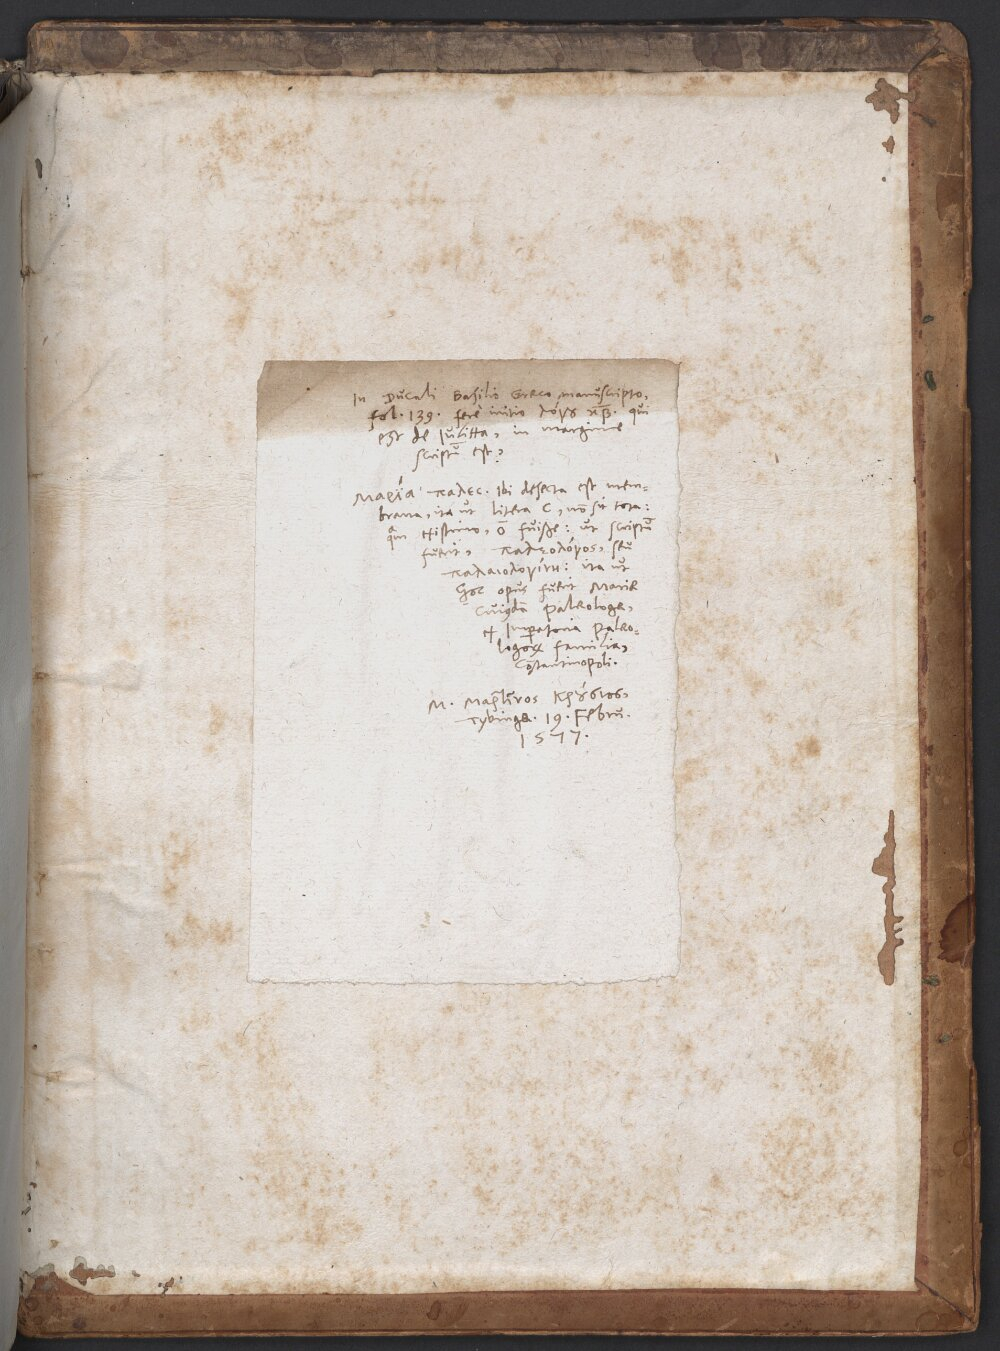 In Ducali Basilio Graeco manuscripto,
fol. 139. ferè initio λόγȣ κβ̅. qui
est de Iulitta, in margine
scriptū est,
Μαρία παλεc. Ibi desecta est mem-
brana, ita ut litera C, nō sit tota:
qm̄ existimo, ο̄ fuisse: ut scriptū
fuerit, παλεολόγος, seu
παλαιολογίνη: ita ut
hoc opus fuerit Mariae
cuiusdā Palaeologae,
ex Imperatoria Palaeo-
logorū familia,
Cōstantinopoli.
M. Μαρτῖνος Κρȣ́σιος,
Tybingae. 19. Febru.
1577.